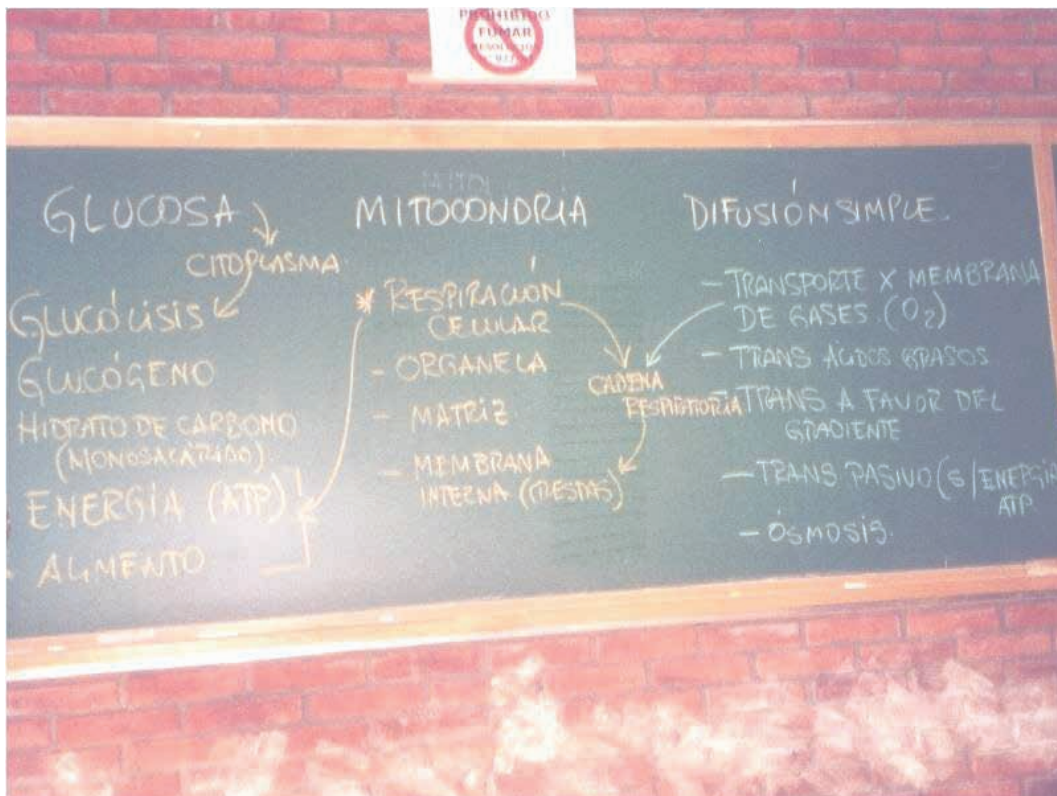 PROHIBIDO
FUMAR
GLUCOSA
CITOPLASMA
GLUCÓLISIS
GLUCÓGENO
HIDRATO DE CARBONO
(MONOSACÁRIDO)
ENERGÍA (ATP)
- ALIMENTO
MITOCONDRIA
* RESPIRACIÓN
CELULAR
- ORGANELA
- MATRIZ
- MEMBRANA
INTERNA (CRESTAS)
CADENA
RESPIRATORIA
DIFUSIÓN SIMPLE.
- TRANSPORTE X MEMBRANA
DE GASES. (O₂)
- TRANS ÁCIDOS GRASOS
- TRANS A FAVOR DEL
GRADIENTE
- TRANS PASIVO (S/ENERGÍA
ATP
- ÓSMOSIS.